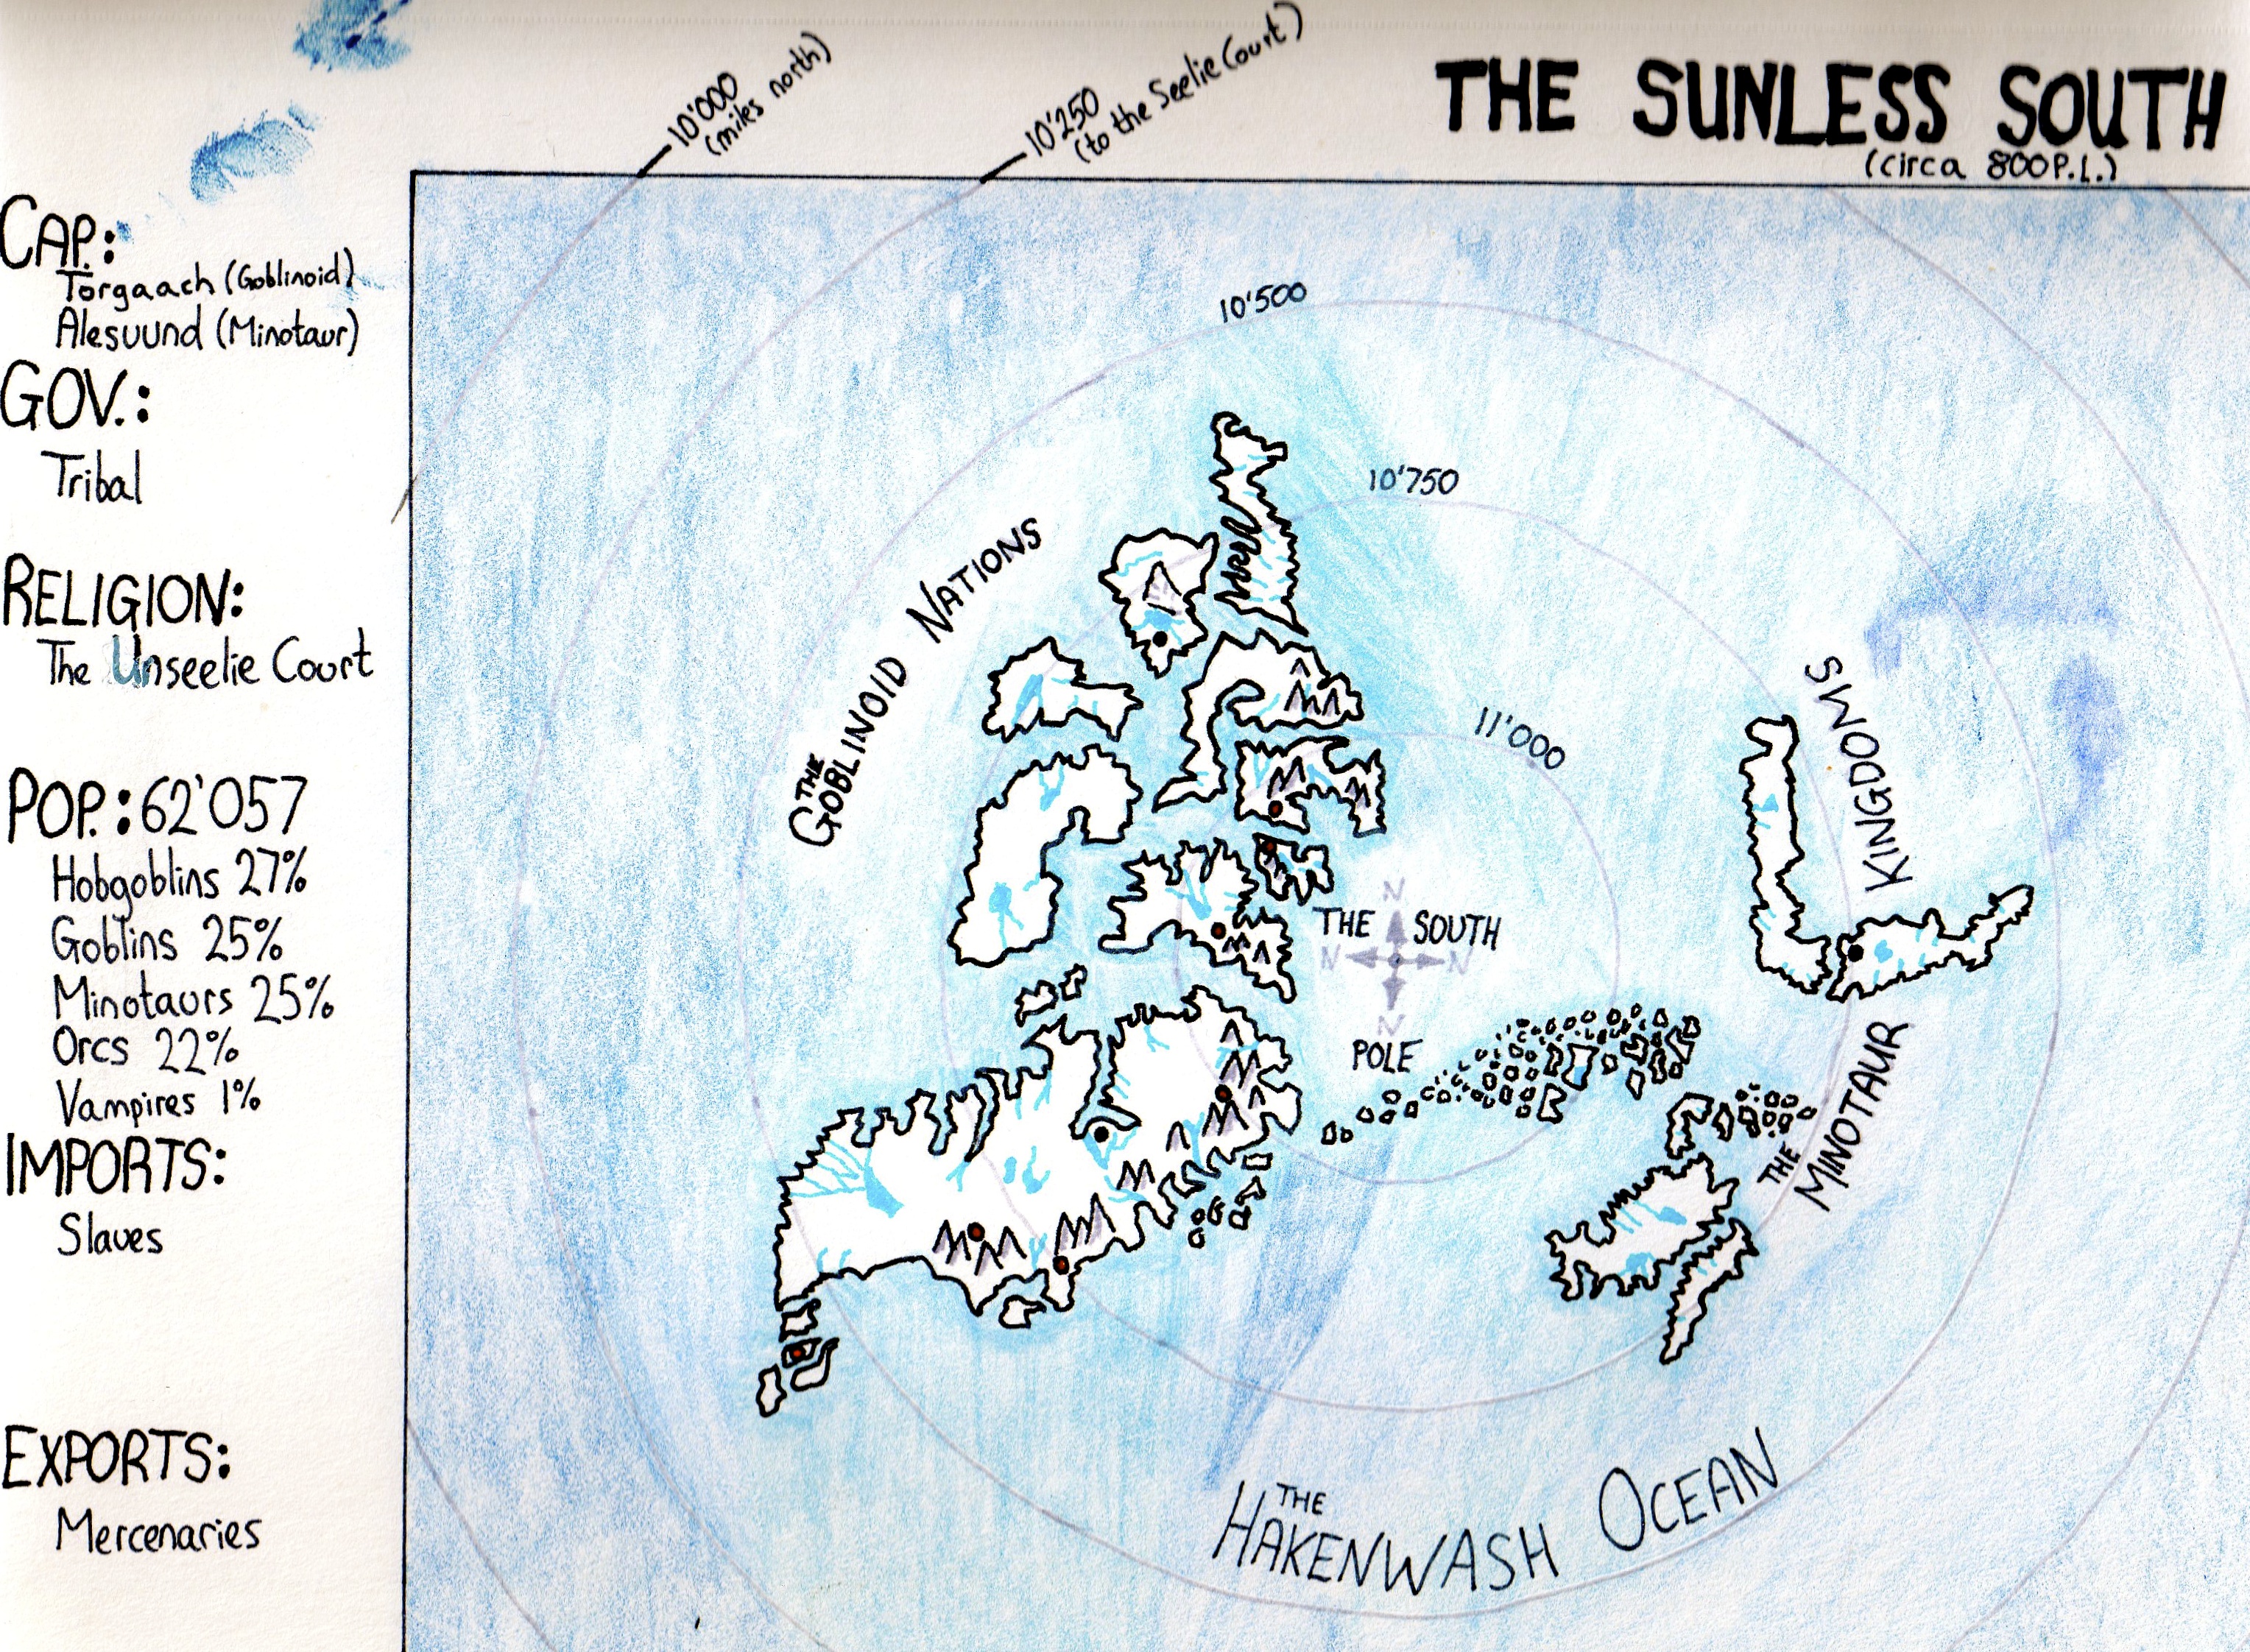 THE SUNLESS SOUTH
(circa 800P.L.)
10'000
(miles north)
10'250
(to the Seelie Court)
CAP.:
Torgaach (Goblinoid)
Alesuund (Minotaur)
GOV.:
Tribal
RELIGION:
The Unseelie Court
POP.: 62'057
Hobgoblins 27%
Goblins 25%
Minotaurs 25%
Orcs 22%
Vampires 1%
IMPORTS:
Slaves
EXPORTS:
Mercenaries
10'500
10'750
11'000
THE
GOBLINOID NATIONS
THE SOUTH
POLE
N
N
N
N
THE
MINOTAUR KINGDOMS
THE
HAKENWASH OCEAN